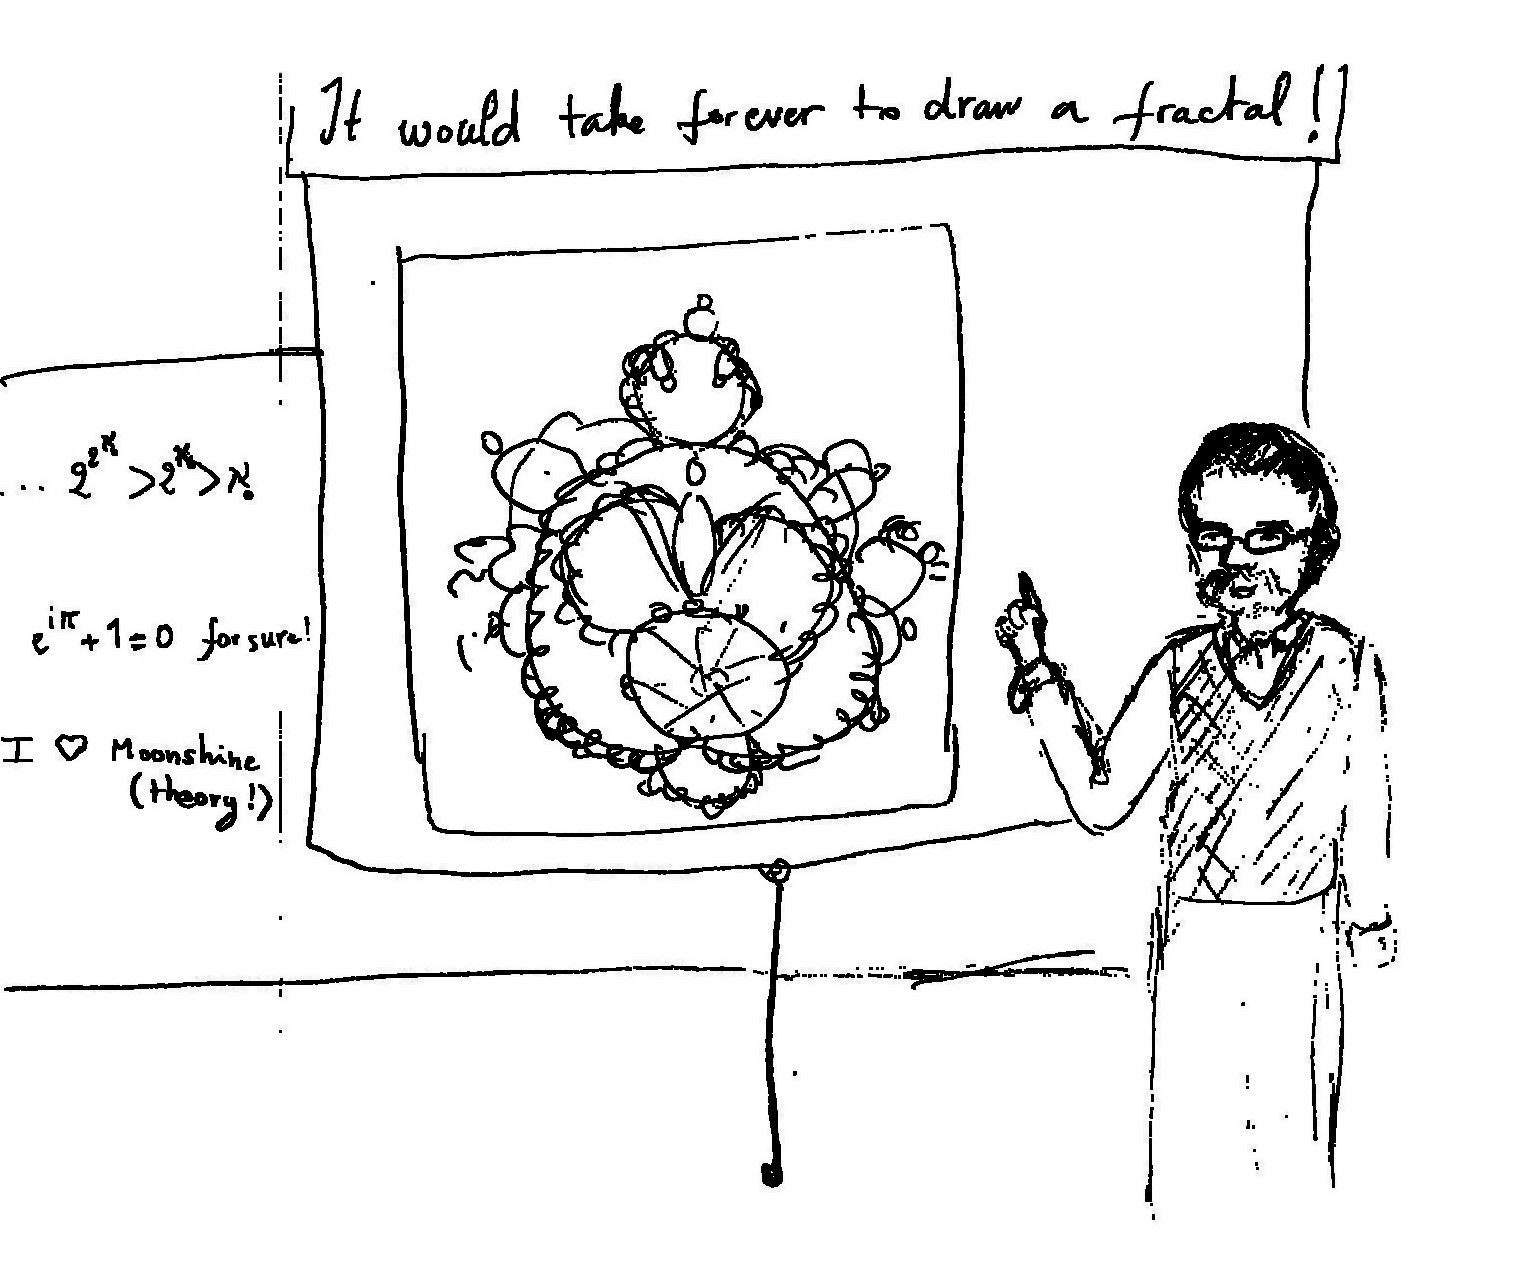 It would take forever to draw a fractal!
... 2^2^ℵ > 2^ℵ > ℵ.
e^iπ + 1 = 0 for sure!
I ♡ Moonshine
(theory!)